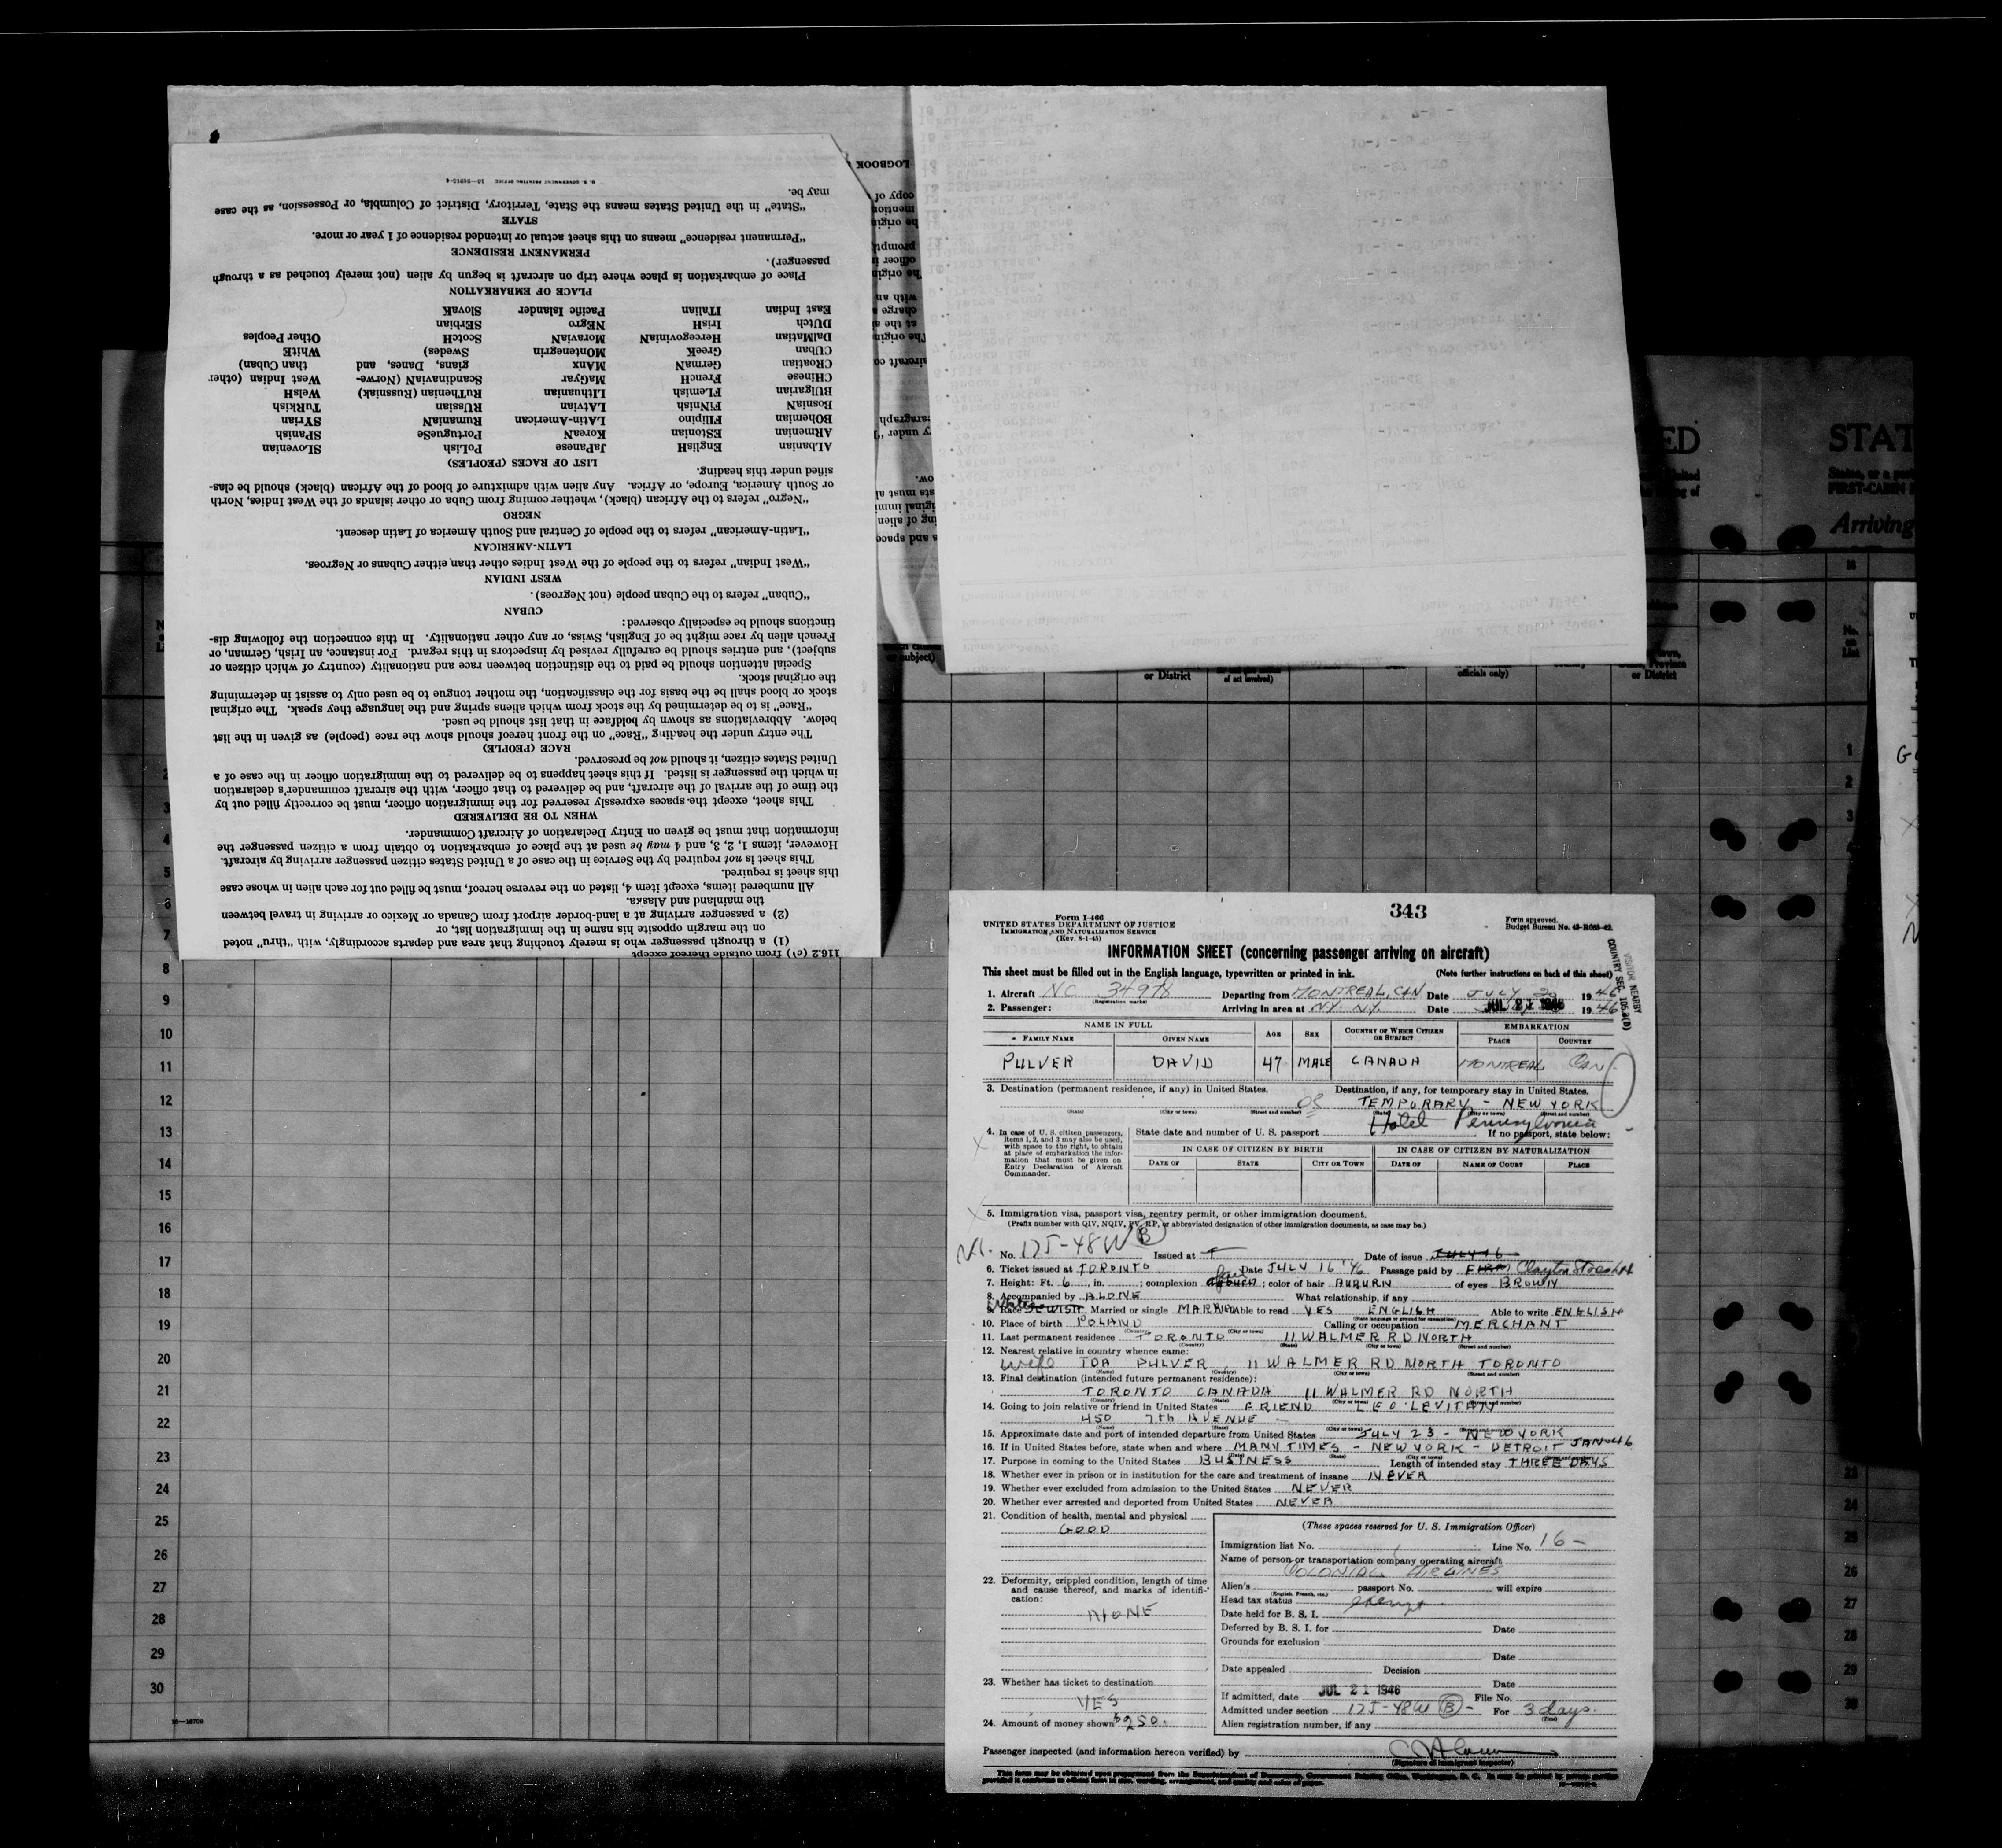 U. S. GOVERNMENT PRINTING OFFICE
may be.
"State" in the United States means the State, Territory, District of Columbia, or Possession, as the case
STATE
"Permanent residence" means on this sheet actual or intended residence of 1 year or more.
PERMANENT RESIDENCE
passenger).
Place of embarkation is place where trip on aircraft is begun by alien (not merely touched as a through
PLACE OF EMBARKATION
East Indian ITalian Pacific Islander SlovaK
DUtch IrisH NEgro SErbian
DalMatian HercegoviniaN MoraviaN ScotcH Other Peoples
CUban GreeK MOntenegrin Swedes) WhitE
CRoatian GermaN MAnx gians, Danes, and than Cuban)
CHinese FrencH MaGyar ScandinaviaN (Norwe- West Indian (other
BUlgarian FLemish LIthuanian RuThenian (Russniak) WelsH
BosniaN FiNnish LAtvian RUssian TuRkish
BOhemian FIlipino LAtin-American RumaniaN SYrian
ARmenian EStonian KoreaN PortugueSe SPanish
ALbanian EnglisH JaPanese PoLish SLovenian
LIST OF RACES (PEOPLES)
sified under this heading.
or South America, Europe, or Africa. Any alien with admixture of blood of the African (black) should be clas-
"Negro" refers to the African (black), whether coming from Cuba or other islands of the West Indies, North
NEGRO
"Latin-American" refers to the people of Central and South America of Latin descent.
LATIN-AMERICAN
"West Indian" refers to the people of the West Indies other than either Cubans or Negroes.
WEST INDIAN
"Cuban" refers to the Cuban people (not Negroes).
CUBAN
tinctions should be especially observed:
French alien by race might be of English, Swiss, or any other nationality. In this connection the following dis-
subject), and entries should be carefully revised by inspectors in this regard. For instance, an Irish, German, or
Special attention should be paid to the distinction between race and nationality (country of which citizen or
the original stock.
stock or blood shall be the basis for the classification, the mother tongue to be used only to assist in determining
"Race" is to be determined by the stock from which aliens spring and the language they speak. The original
below. Abbreviations as shown by boldface in that list should be used.
The entry under the heading "Race" on the front hereof should show the race (people) as given in the list
RACE (PEOPLE)
United States citizen, it should not be preserved.
in which the passenger is listed. If this sheet happens to be delivered to the immigration officer in the case of a
the time of the arrival of the aircraft, and be delivered to that officer, with the aircraft commander's declaration
This sheet, except the spaces expressly reserved for the immigration officer, must be correctly filled out by
WHEN TO BE DELIVERED
information that must be given on Entry Declaration of Aircraft Commander.
However, items 1, 2, 3, and 4 may be used at the place of embarkation to obtain from a citizen passenger the
This sheet is not required by the Service in the case of a United States citizen passenger arriving by aircraft.
this sheet is required.
All numbered items, except item 4, listed on the reverse hereof, must be filled out for each alien in whose case
the mainland and Alaska.
(2) a passenger arriving at a land-border airport from Canada or Mexico or arriving in travel between
on the margin opposite his name in the immigration list, or
(1) a through passenger who is merely touching that area and departs accordingly, with "thru" noted
116.2 (c)) from outside thereof except
LOGBOOK
copy of
mention
he origin
prompt
officer i
he origin
with an
charge a
at the ai
The origin
aircraft co
aragraph
ry under
ow.
sts must al
iginal immi
ing of alien
s and space
ED
STAT
FIRST-CABIN
Arriving
or subject)
or District
officials only)
or District
8
9
10
11
12
13
14
15
16
17
18
19
20
21
22
23
24
25
26
27
28
29
30
343
Form I-466
UNITED STATES DEPARTMENT OF JUSTICE
IMMIGRATION AND NATURALIZATION SERVICE
(Rev. 8-1-45)
Form approved.
Budget Bureau No. 43-R063-42.
INFORMATION SHEET (concerning passenger arriving on aircraft)
This sheet must be filled out in the English language, typewritten or printed in ink. (Note further instructions on back of this sheet)
VISITOR NEARBY
COUNTRY SEC. 105.3(D)
1. Aircraft NC 34978 Departing from MONTREAL, CAN Date JULY 20 1946
(Registration marks)
2. Passenger: Arriving in area at N.Y. N.Y. Date JUL 21 1946 1946
NAME IN FULL AGE SEX COUNTRY OF WHICH CITIZEN OR SUBJECT EMBARKATION
FAMILY NAME GIVEN NAME PLACE COUNTRY
PULVER DAVID 47 MALE CANADA MONTREAL CAN
3. Destination (permanent residence, if any) in United States. Destination, if any, for temporary stay in United States.
TEMPORARY - NEW YORK
(State) (City or town) (Street and number) (State) (City or town) (Street and number)
Hotel Pennsylvania
4. In case of U. S. citizen passengers, items 1, 2, and 3 may also be used, with space to the right, to obtain at place of embarkation the information that must be given on Entry Declaration of Aircraft Commander.
State date and number of U. S. passport If no passport, state below:
IN CASE OF CITIZEN BY BIRTH IN CASE OF CITIZEN BY NATURALIZATION
DATE OF STATE CITY OR TOWN DATE OF NAME OF COURT PLACE
5. Immigration visa, passport visa, reentry permit, or other immigration document.
(Prefix number with QIV, NQIV, PV, RP, or abbreviated designation of other immigration documents, as case may be.)
No. 175-48W (B) Issued at Date of issue JULY 16
6. Ticket issued at TORONTO Date JULY 16 '46 Passage paid by FIRM Clayton
7. Height: Ft. 6, in. ; complexion fair ; color of hair AUBURN of eyes BROWN
8. Accompanied by ALONE What relationship, if any
9. Race JEWISH White Married or single MARRIED Able to read YES ENGLISH Able to write ENGLISH
(State language or ground for exemption)
10. Place of birth POLAND Calling or occupation MERCHANT
(Country) (City or town)
11. Last permanent residence TORONTO 11 WALMER RD NORTH
(Country) (State) (City or town) (Street and number)
12. Nearest relative in country whence came:
wife IDA PULVER, 11 WALMER RD NORTH TORONTO
(Name) (Country) (City or town) (Street and number)
13. Final destination (intended future permanent residence):
TORONTO CANADA 11 WALMER RD NORTH
(Country) (State) (City or town) (Street and number)
14. Going to join relative or friend in United States FRIEND LEO LEVITAN
450 7th AVENUE
(Name) (State) (City or town) (Street and number)
15. Approximate date and port of intended departure from United States JULY 23 - NEW YORK
16. If in United States before, state when and where MANY TIMES - NEW YORK - DETROIT JAN 46
(Date) (State) (City or town)
17. Purpose in coming to the United States BUSINESS Length of intended stay THREE DAYS
18. Whether ever in prison or in institution for the care and treatment of insane NEVER
19. Whether ever excluded from admission to the United States NEVER
20. Whether ever arrested and deported from United States NEVER
21. Condition of health, mental and physical
GOOD
22. Deformity, crippled condition, length of time and cause thereof, and marks of identification:
NONE
23. Whether has ticket to destination
YES
24. Amount of money shown $250.
(These spaces reserved for U. S. Immigration Officer)
Immigration list No. Line No. 16 -
Name of person or transportation company operating aircraft
COLONIAL AIRLINES
Alien's passport No. will expire
(English, French, etc.)
Head tax status exempt
Date held for B. S. I.
Deferred by B. S. I. for Date
Grounds for exclusion
Date
Date appealed Decision
Date
If admitted, date JUL 21 1946 File No.
Admitted under section 175-48W (B) - For 3 days.
(Time)
Alien registration number, if any
Passenger inspected (and information hereon verified) by
(Signature of immigrant inspector)
This form may be obtained upon prepayment from the Superintendent of Documents, Government Printing Office, Washington, D. C. It may be printed by private parties
provided it conforms to official form in size, wording, arrangement, and quality and color of paper.